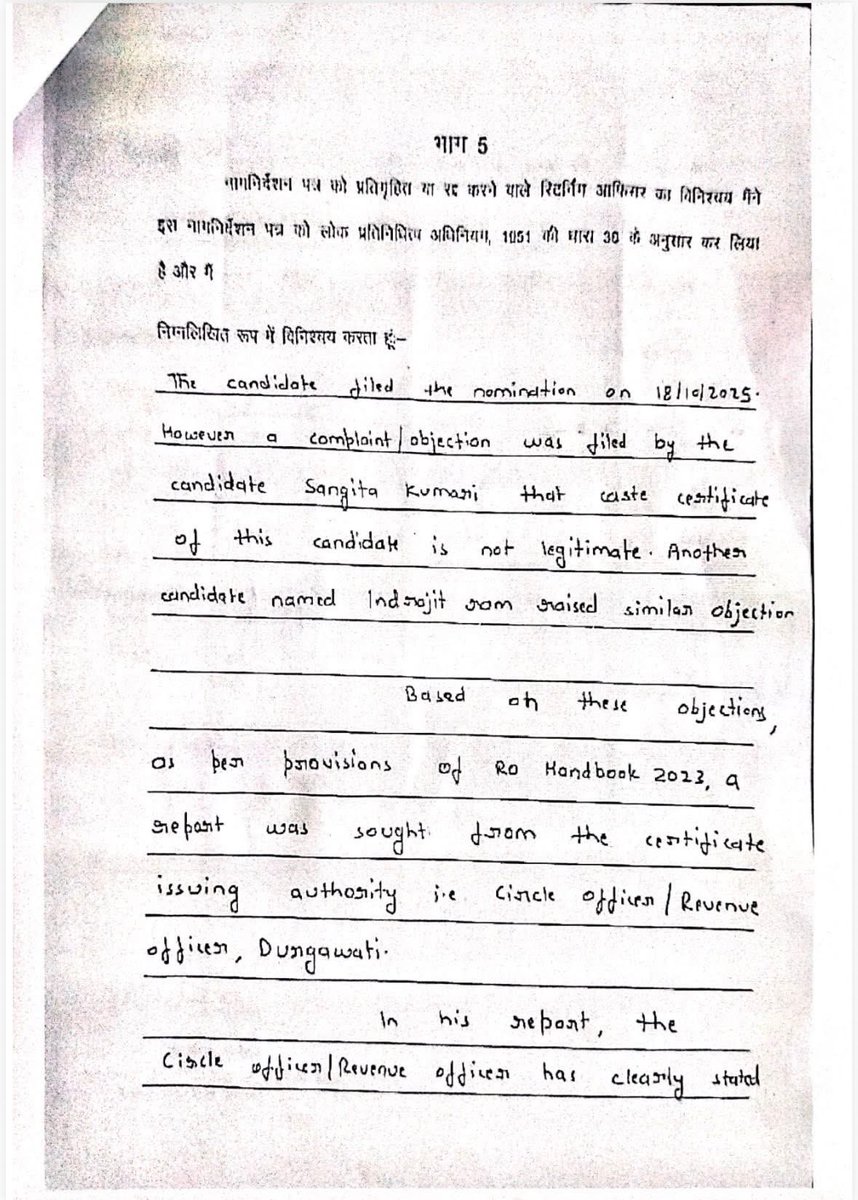 भाग 5
नामनिर्देशन पत्र को प्रतिगृहित या रद्द करने वाले रिटर्निंग आफिसर का विनिश्चय मैंने
इस नामनिर्देशन पत्र को लोक प्रतिनिधित्व अधिनियम, 1951 की धारा 36 के अनुसार कर लिया
है और मैं
निम्नलिखित रूप में विनिश्चय करता हूं:–
The candidate filed the nomination on 18/10/2025.
However a complaint/objection was filed by the
candidate Sangita Kumari that caste certificate
of this candidate is not legitimate. Another
candidate named Indrajit ram raised similar objection
Based on these objections,
as per provisions of RO Handbook 2023, a
report was sought from the certificate
issuing authority i.e Circle officer/Revenue
officer, Durgawati.
In his report, the
Circle officer/Revenue officer has clearly stated